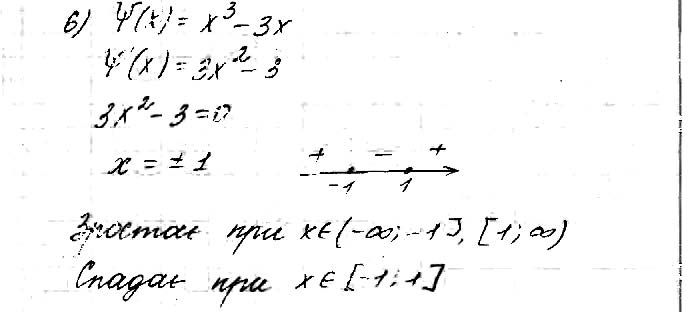 б) Ψ(x) = x³ - 3x
Ψ'(x) = 3x² - 3
3x² - 3 = 0
x = ± 1
+ - +
-1 1
Зростає при x ∈ (-∞; -1], [1; ∞)
Спадає при x ∈ [-1; 1]